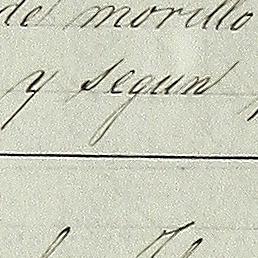 de morillo
y segun